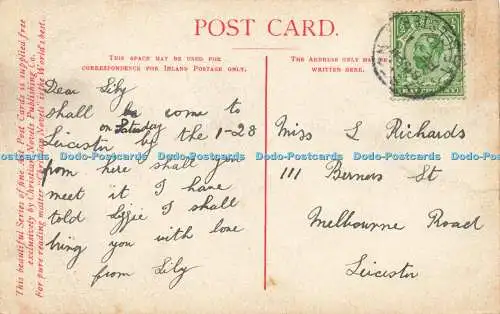 POST CARD.
THIS SPACE MAY BE USED FOR
CORRESPONDENCE FOR INLAND POSTAGE ONLY.
THE ADDRESS ONLY MAY BE
WRITTEN HERE.
This beautiful Series of fine Art Post Cards is supplied free
exclusively by Christian Novels Publishing Co.
For pure reading matter "Christian Novels" is the World's best.
Dear Lily
shall be come to
on Saturday
Leicster by the 1-28
from here shall you
meet it I have
told Lizzie I shall
bring you with love
from Lily
Miss L Richards
111 Berners St
Melbourne Road
Leicster
HALFPENNY
Postcards-Dodo.com